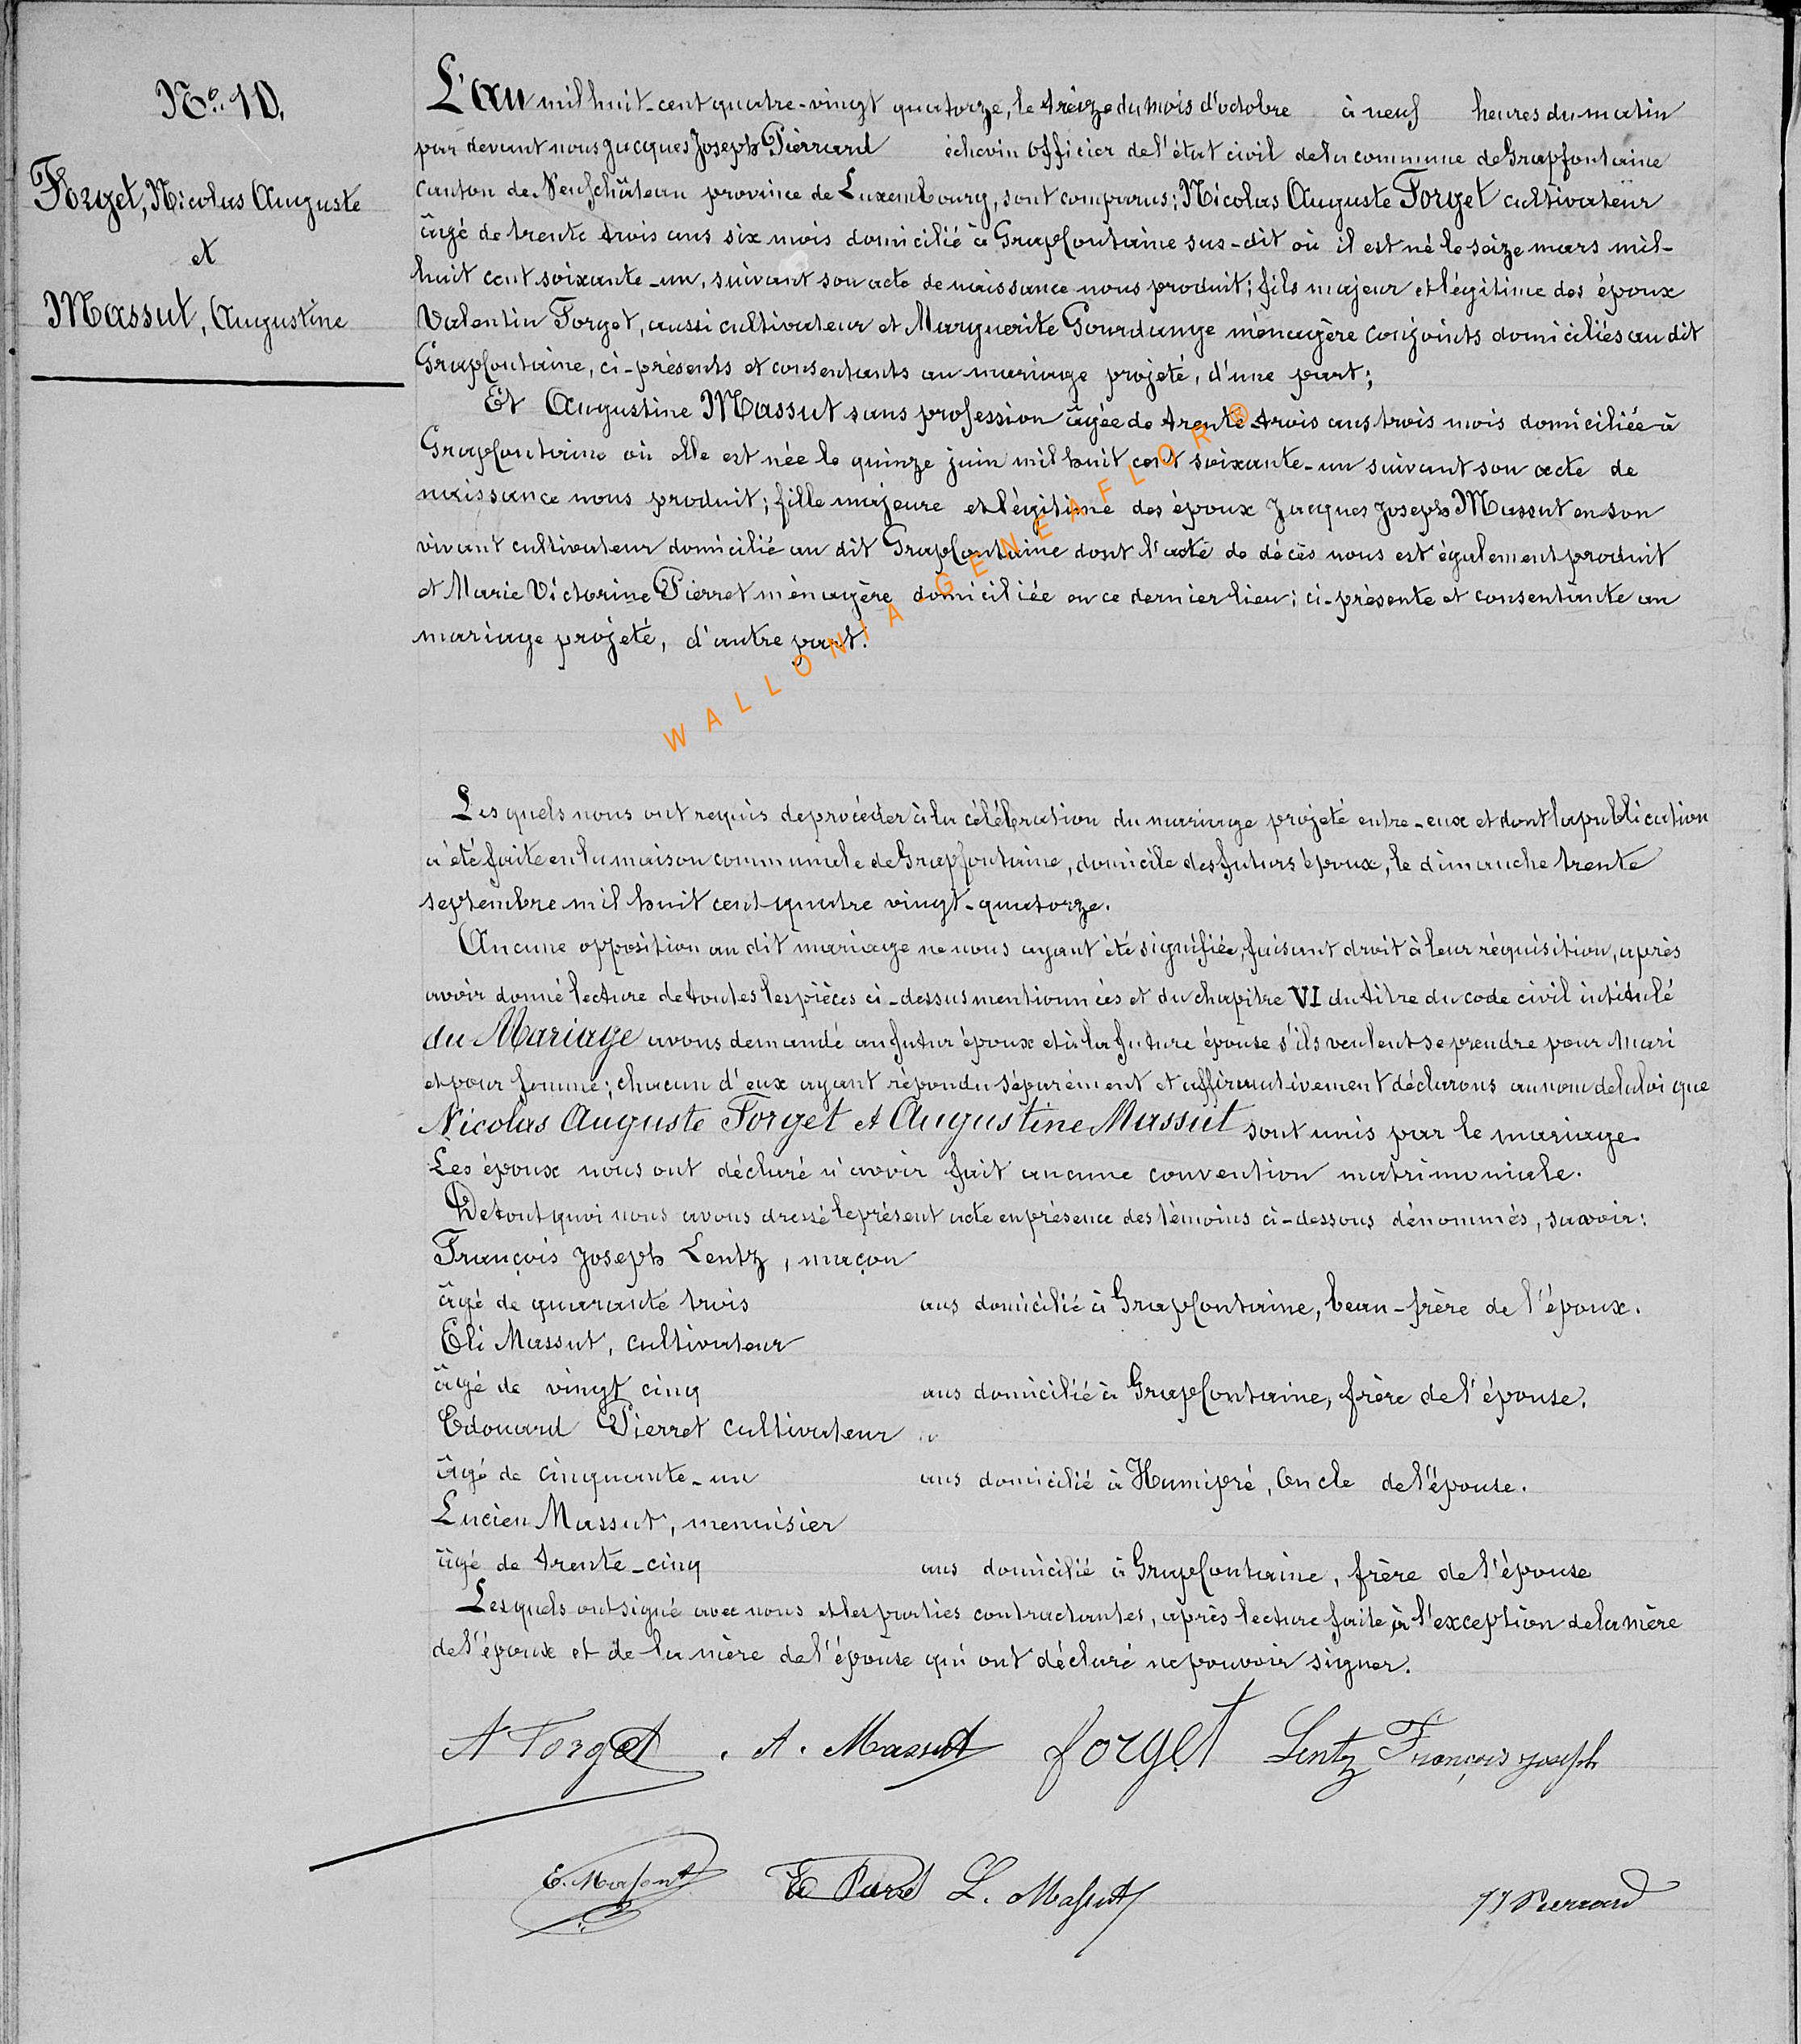 Nº. 10.
Forget, Nicolas Auguste
et
Massut, Augustine
L'an mil huit-cent quatre-vingt quatorze, le treize du mois d'octobre à neuf heures du matin
par devant nous Jacques Joseph Pierrard échevin Officier de l'état civil de la commune de Grapfontaine
Canton de Neufchâteau province de Luxembourg, sont comparus; Nicolas Auguste Forget cultivateur
âgé de trente trois ans six mois domicilié à Grapfontaine sus-dit où il est né le seize mars mil-
huit cent soixante-un, suivant son acte de naissance nous produit; fils majeur et légitime des époux
Valentin Forget, aussi cultivateur et Marguerite Gourdange ménagère conjoints domiciliés au dit
Grapfontaine, ci-présents et consentants au mariage projeté, d'une part;
Et Augustine Massut sans profession âgée de trente-trois ans trois mois domiciliée à
Grapfontaine où elle est née le quinze juin mil huit cent soixante-un suivant son acte de
naissance nous produit; fille majeure et légitime des époux Jacques Joseph Massut en son
vivant cultivateur domicilié au dit Grapfontaine dont l'acte de décès nous est également produit
et Marie Victorine Pierret ménagère domiciliée en ce dernier lieu; ci-présente et consentante au
mariage projeté, d'autre part.
WALLONIA-GENEAFLOR ®
Lesquels nous ont requis de procéder à la célébration du mariage projeté entre-eux et dont la publication
a été faite en la maison communale de Grapfontaine, domicile des futurs époux, le dimanche trente
septembre mil huit cent quatre vingt-quatorze.
Aucune opposition au dit mariage ne nous ayant été signifiée, faisant droit à leur réquisition, après
avoir donné lecture de toutes les pièces ci-dessus mentionnées et du chapitre VI du titre du code civil intitulé
du Mariage avons demandé au futur époux et à la future épouse s'ils veulent se prendre pour mari
et pour femme; chacun d'eux ayant répondu séparément et affirmativement déclarons au nom de la loi que
Nicolas Auguste Forget et Augustine Massut sont unis par le mariage.
Les époux nous ont déclaré n'avoir fait aucune convention matrimoniale.
De tout quoi nous avons dressé le présent acte en présence des témoins ci-dessous dénommés, savoir:
François Joseph Lentz, maçon
âgé de quarante trois ans domicilié à Grapfontaine, beau-frère de l'époux.
Eli Massut, cultivateur
âgé de vingt cinq ans domicilié à Grapfontaine, frère de l'épouse.
Edouard Pierret cultivateur
âgé de cinquante-un ans domicilié à Hamipré, Oncle de l'épouse.
Lucien Massut, menuisier
âgé de trente-cinq ans domicilié à Grapfontaine, frère de l'épouse
Lesquels ont signé avec nous et les parties contractantes, après lecture faite, à l'exception de la mère
de l'époux et de la mère de l'épouse qui ont déclaré ne pouvoir signer.
A Forget . A. Massut forget Lentz François joseph
E. Massut L. Massut JJ Pierrard